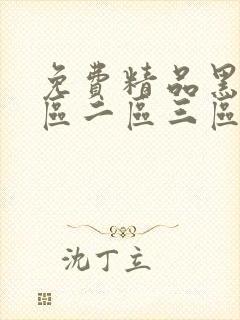 免費精品黑
區二區三區
沈丁立